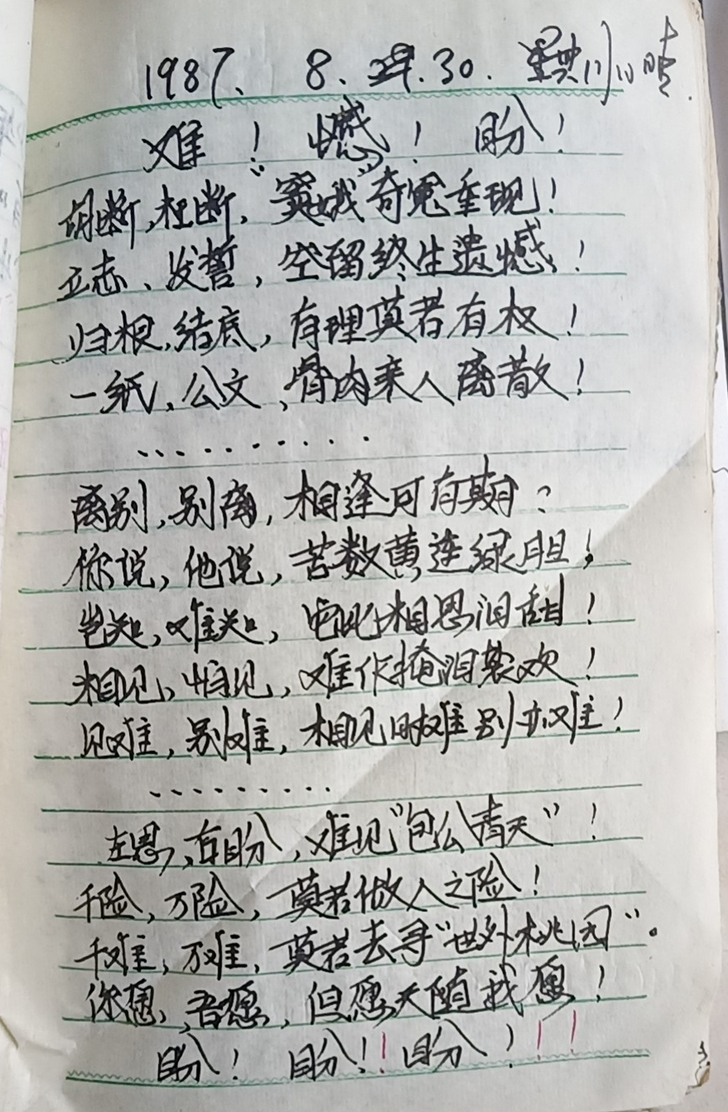 1987. 8. 30. 星期日 晴.
难！ 憾！ 盼！
胡断,枉断, 窦娥奇冤重现！
立志、发誓, 空留终生遗憾！
归根,结底, 有理莫若有权！
一纸,公文,骨肉亲人离散！
··········
离别,别离, 相逢可有期？
你说,他说, 苦数黄连绿胆！
岂知,难知, 相思泪甜！
相见,怕见, 难作掩泪装欢！
见难,别难, 相见时难别亦难！
·········
左思,右盼,难见"包公青天"！
千险,万险, 莫若做人之险！
千难,万难, 莫若去寻"世外桃园"。
你愿,吾愿, 但愿天随我愿！
盼！ 盼！！盼！！！